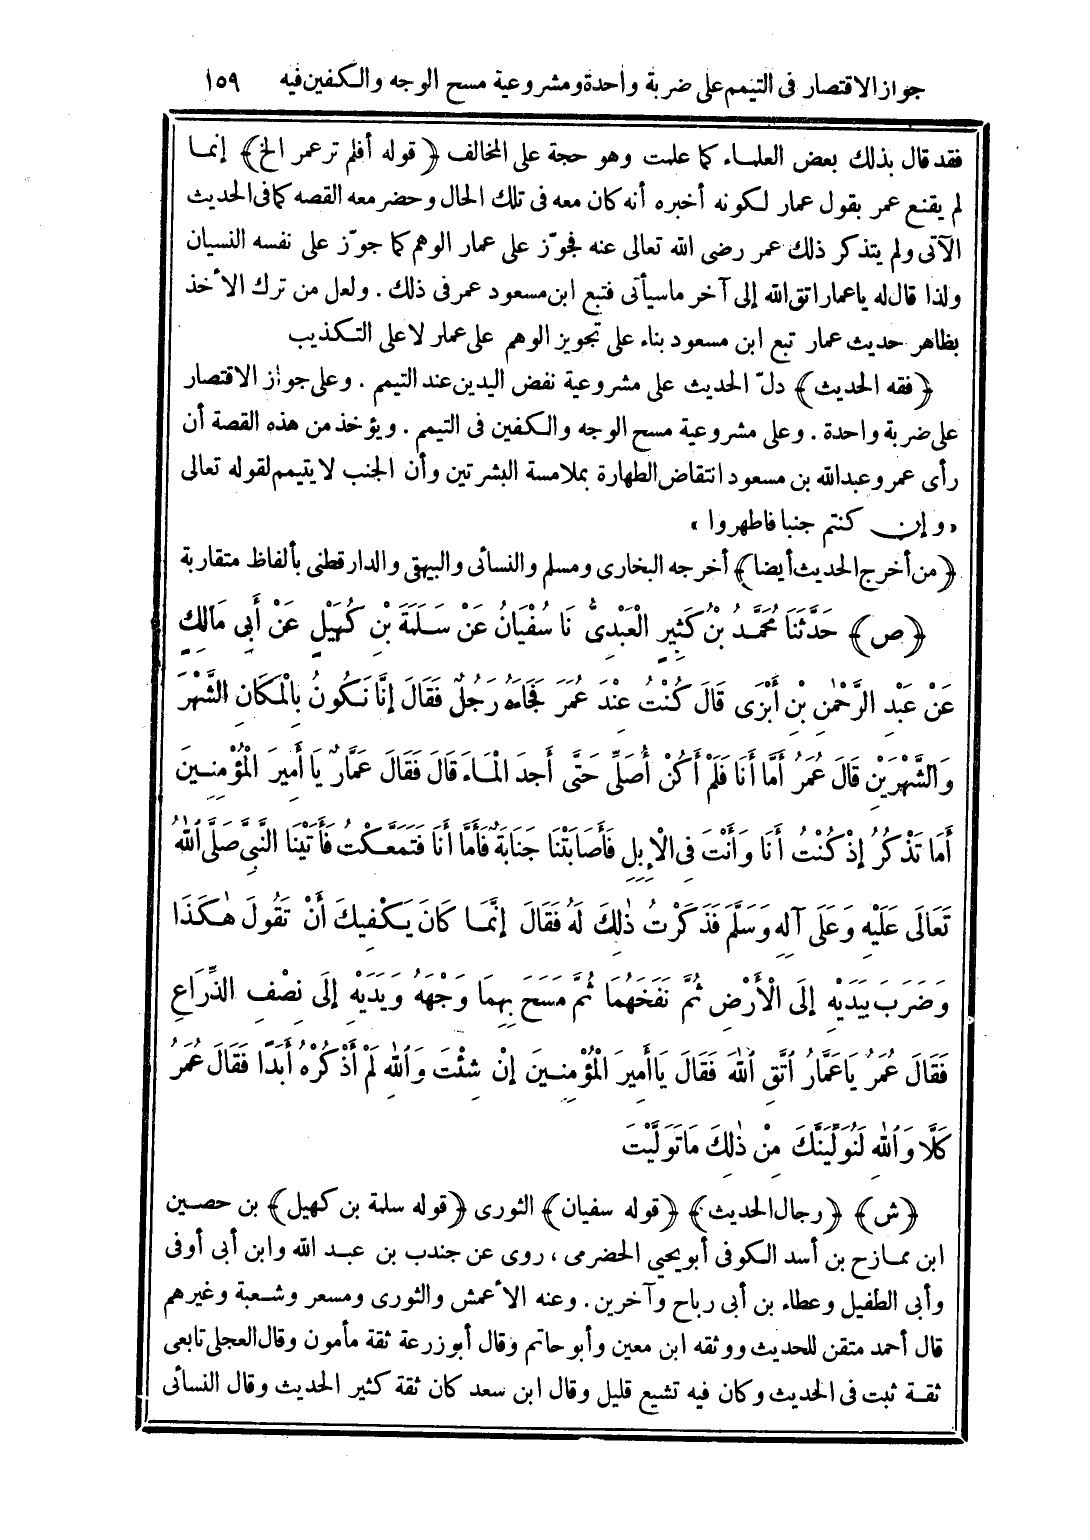 جواز الاقتصار فى التيمم على ضربة واحدة ومشروعية مسح الوجه والكفين فيه ١٥٩
فقد قال بذلك بعض العلماء كما علمت وهو حجة على المخالف ﴿قوله أفلم تر عمر الخ﴾ إنما
لم يقنع عمر بقول عمار لكونه أخبره أنه كان معه فى تلك الحال وحضر معه القصه كما فى الحديث
الآتى ولم يتذكر ذلك عمر رضى الله تعالى عنه فجوّز على عمار الوهم كما جوّز على نفسه النسيان
ولذا قال له ياعمار اتق الله إلى آخر ماسيأتى فتبع ابن مسعود عمر فى ذلك . ولعل من ترك الأخذ
بظاهر حديث عمار تبع ابن مسعود بناء على تجويز الوهم على عمار لا على التكذيب
﴿فقه الحديث﴾ دلّ الحديث على مشروعية نفض اليدين عند التيمم . وعلى جواز الاقتصار
على ضربة واحدة . وعلى مشروعية مسح الوجه والكفين فى التيمم . ويؤخذ من هذه القصة أن
رأى عمر وعبد الله بن مسعود انتقاض الطهارة بملامسة البشرتين وأن الجنب لا يتيمم لقوله تعالى
«وإن كنتم جنبا فاطهروا»
﴿من أخرج الحديث أيضا﴾ أخرجه البخارى ومسلم والنسائى والبيهقى والدارقطنى بألفاظ متقاربة
﴿ص﴾ حَدَّثَنَا مُحَمَّدُ بْنُ كَثِيرٍ الْعَبْدِىُّ نَا سُفْيَانُ عَنْ سَلَمَةَ بْنِ كُهَيْلٍ عَنْ أَبِى مَالِكٍ
عَنْ عَبْدِ الرَّحْمٰنِ بْنِ أَبْزَى قَالَ كُنْتُ عِنْدَ عُمَرَ فَجَاءَهُ رَجُلٌ فَقَالَ إِنَّا نَكُونُ بِالْمَكَانِ الشَّهْرَ
وَالشَّهْرَيْنِ قَالَ عُمَرُ أَمَّا أَنَا فَلَمْ أَكُنْ أُصَلِّى حَتَّى أَجِدَ الْمَاءَ قَالَ فَقَالَ عَمَّارٌ يَا أَمِيرَ الْمُؤْمِنِينَ
أَمَا تَذْكُرُ إِذْ كُنْتُ أَنَا وَأَنْتَ فِى الْإِبِلِ فَأَصَابَتْنَا جَنَابَةٌ فَأَمَّا أَنَا فَتَمَعَّكْتُ فَأَتَيْنَا النَّبِىَّ صَلَّى اللهُ
تَعَالَى عَلَيْهِ وَعَلَى آلِهِ وَسَلَّمَ فَذَكَرْتُ ذٰلِكَ لَهُ فَقَالَ إِنَّمَا كَانَ يَكْفِيكَ أَنْ تَقُولَ هٰكَذَا
وَضَرَبَ بِيَدَيْهِ إِلَى الْأَرْضِ ثُمَّ نَفَخَهُمَا ثُمَّ مَسَحَ بِهِمَا وَجْهَهُ وَيَدَيْهِ إِلَى نِصْفِ الذِّرَاعِ
فَقَالَ عُمَرُ يَا عَمَّارُ اتَّقِ اللهَ فَقَالَ يَا أَمِيرَ الْمُؤْمِنِينَ إِنْ شِئْتَ وَاللهِ لَمْ أَذْكُرْهُ أَبَدًا فَقَالَ عُمَرُ
كَلَّا وَاللهِ لَنُوَلِّيَنَّكَ مِنْ ذٰلِكَ مَا تَوَلَّيْتَ
﴿ش﴾ ﴿رجال الحديث﴾ ﴿قوله سفيان﴾ الثورى ﴿قوله سلمة بن كهيل﴾ بن حصين
ابن ممازح بن أسد الكوفى أبو يحيى الحضرمى ، روى عن جندب بن عبد الله وابن أبى أوفى
وأبى الطفيل وعطاء بن أبى رباح وآخرين . وعنه الأعمش والثورى ومسعر وشعبة وغيرهم
قال أحمد متقن للحديث ووثقه ابن معين وأبو حاتم وقال أبو زرعة ثقة مأمون وقال العجلى تابعى
ثقة ثبت فى الحديث وكان فيه تشيع قليل وقال ابن سعد كان ثقة كثير الحديث وقال النسائى